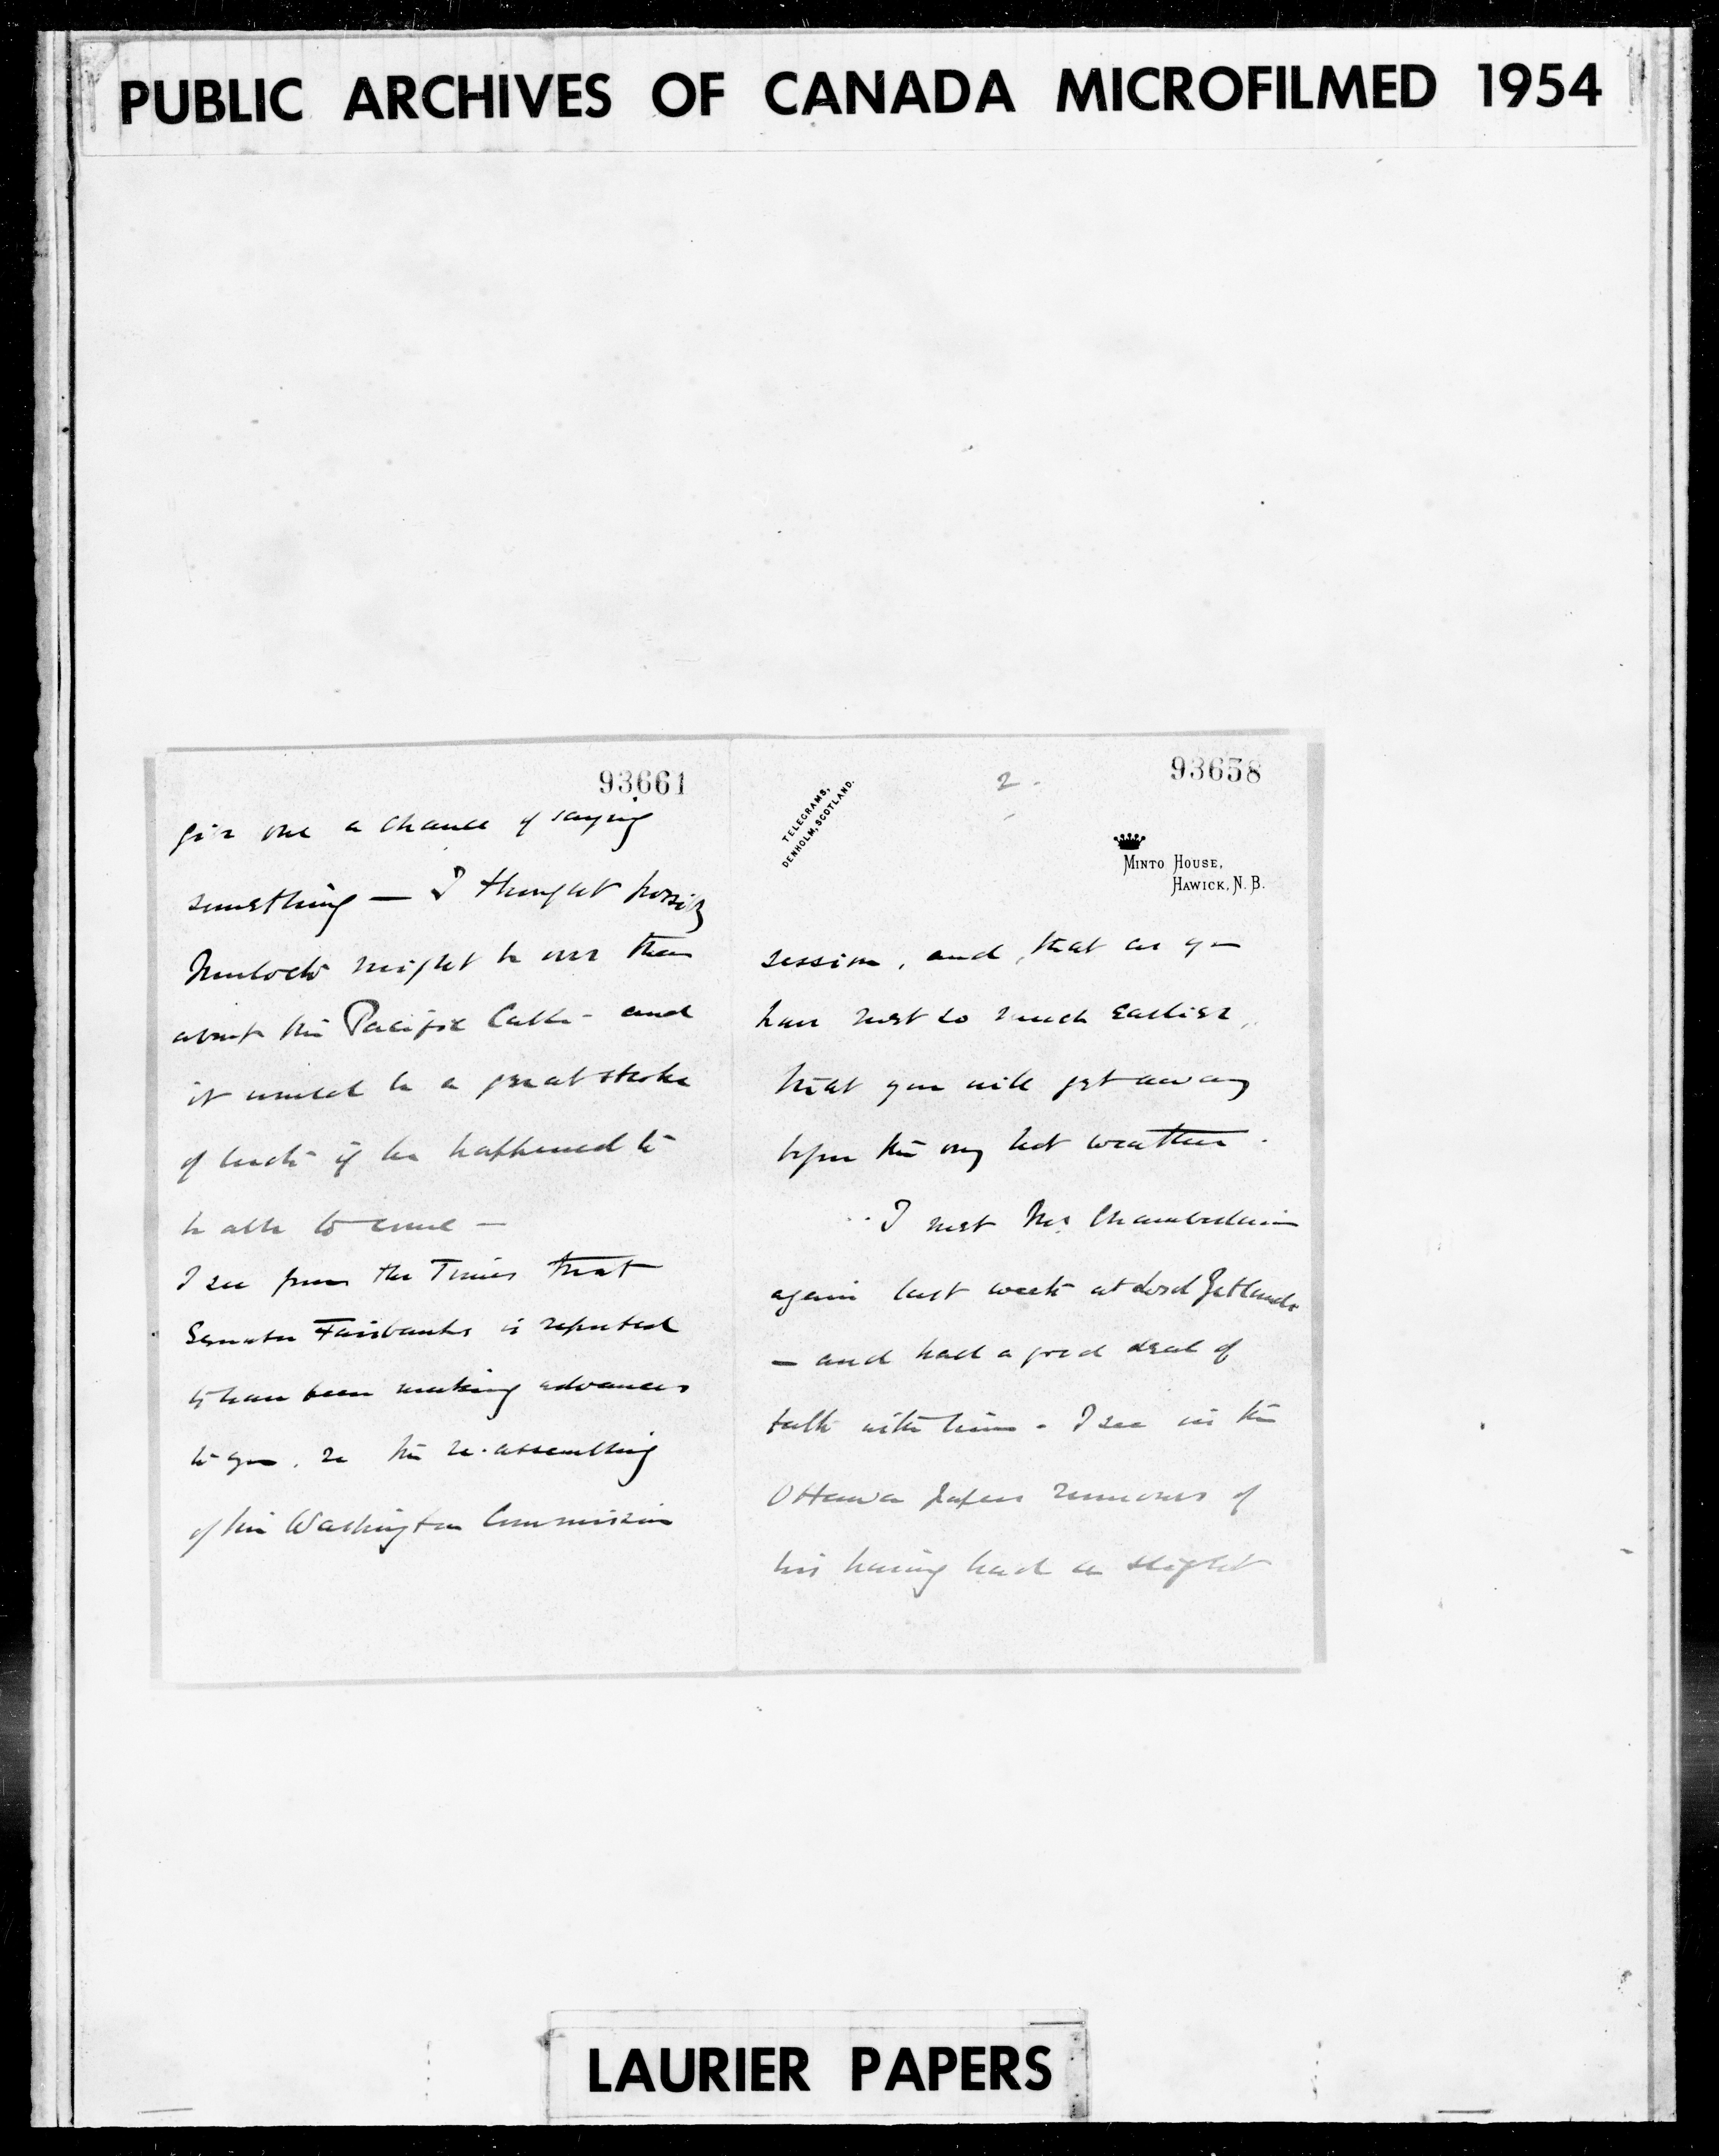 PUBLIC ARCHIVES OF CANADA MICROFILMED 1954
93661
give one a chance of saying
something — I thought possibly
Mulock might be over then
about the Pacific Cable - and
it would be a great stroke
of luck if he happened to
be able to come —
I see from the Times that
Senator Fairbanks is reported
to have been making advances
to you, re the re-assembling
of the Washington Commission
93658
2.
TELEGRAMS,
DENHOLM, SCOTLAND.
MINTO HOUSE,
HAWICK, N.B.
session, and, that as you
have met so much earlier,
that you will get away
before the very hot weather.
I met Mr. Chamberlain
again last week at Lord Zetlands
— and had a good deal of
talk with him. I see in the
Ottawa papers rumours of
his having had a slight
LAURIER PAPERS